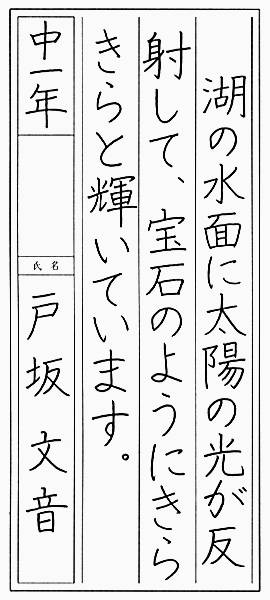 湖の水面に太陽の光が反
射して、宝石のようにきら
きらと輝いています。
中一年
氏名
戸坂 文音